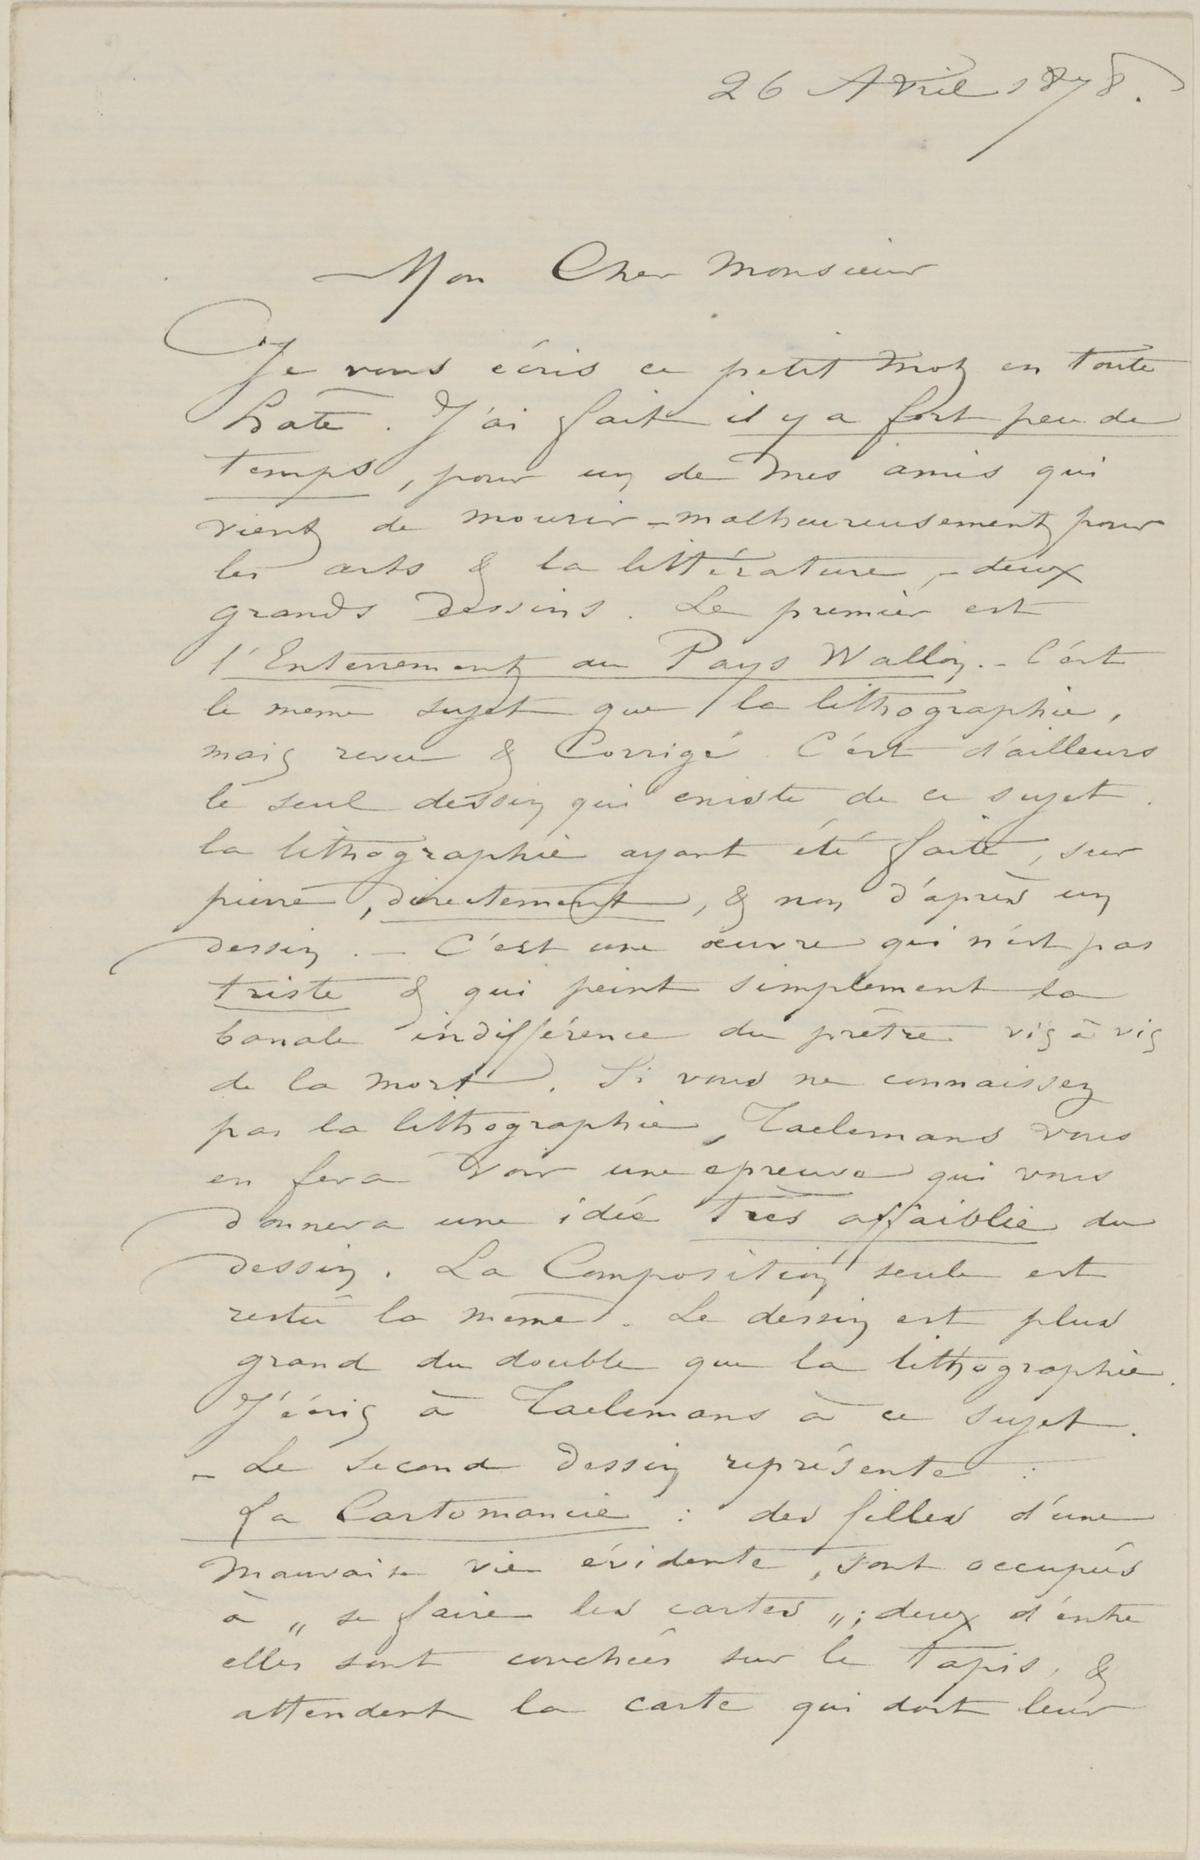 26 Avril 1878.
Mon Cher Monsieur
Je vous écris ce petit mot en toute
hate. J'ai fait il y a fort peu de
temps, pour un de mes amis qui
vient de mourir – malheureusement pour
les arts & la littérature, – deux
grands dessins. Le premier est
l'Enterrement au Pays Wallon. – C'est
le même sujet que la lithographie,
mais revu & Corrigé. C'est d'ailleurs
le seul dessin qui existe de ce sujet.
la lithographie ayant été faite, sur
pierre, directement, & non d'après un
dessin. – C'est une œuvre qui n'est pas
triste & qui peint simplement la
banale indifférence du prêtre vis à vis
de la mort. Si vous ne connaissez
pas la lithographie, Taelemans vous
en fera voir une epreuve qui vous
donnera une idée très affaiblie du
dessin. La Composition seule est
restée la même. Le dessin est plus
grand du double que la lithographie.
J'écris à Taelemans à ce sujet.
– Le second dessin représente :
La Cartomancie : des filles d'une
mauvaise vie évidente, sont occupées
à „ se faire les cartes „; deux d'entre
elles sont couchées sur le tapis, &
attendent la carte qui doit leur